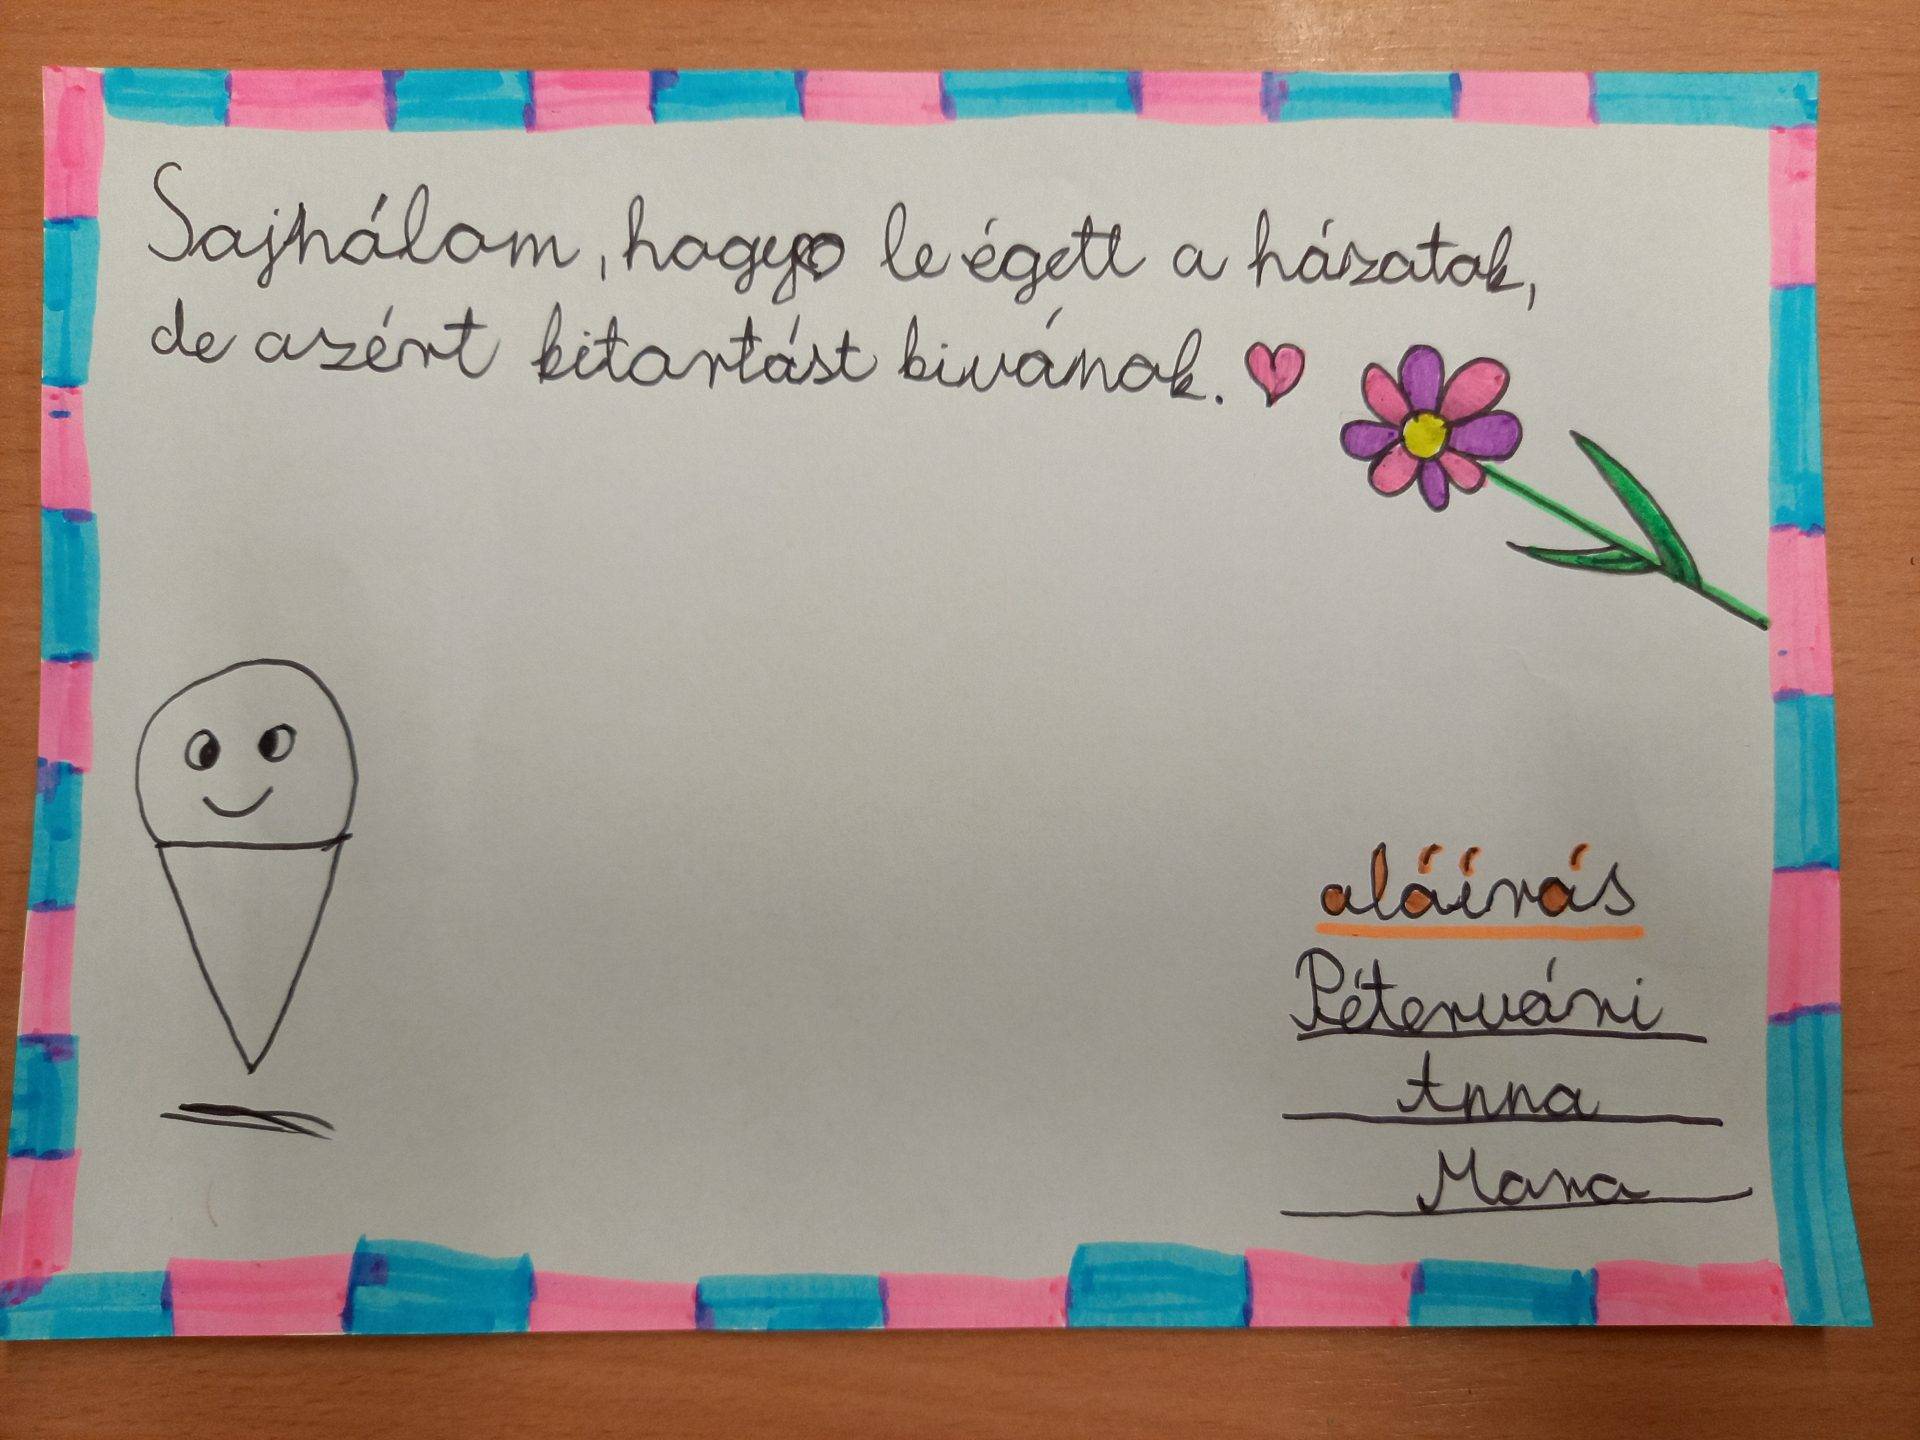 Sajnálom, hogy le égett a házatok,
de azért kitartást kivánok.
aláírás
Pétervári
Anna
Mara